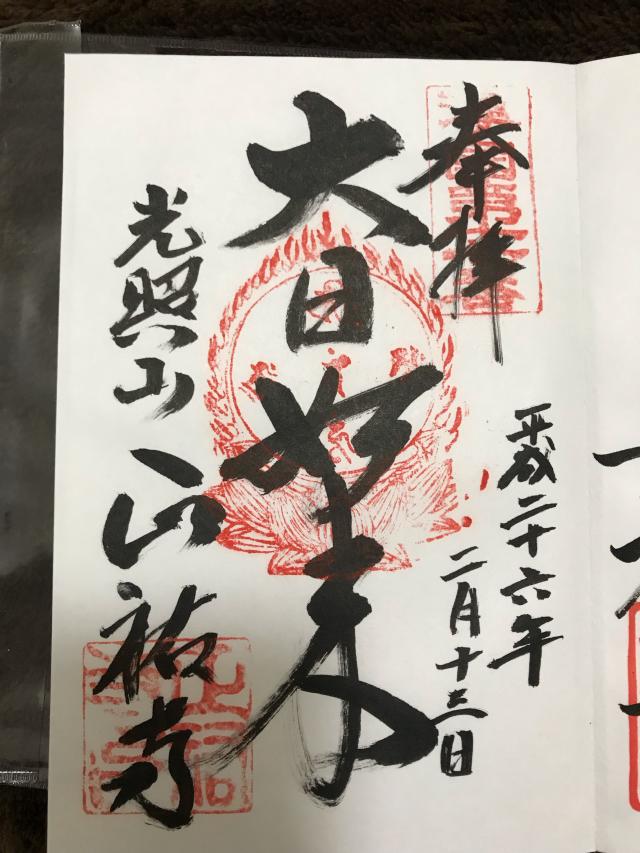 奉拝
平成二十六年
二月十三日
大日如来
光照山
正祐寺